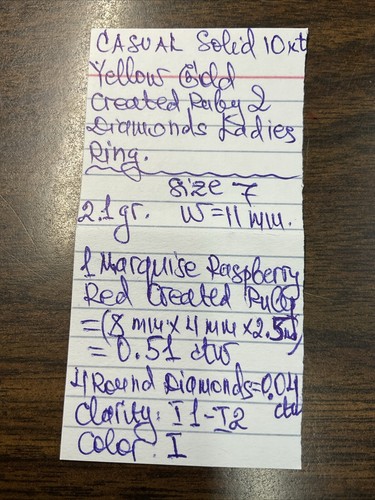 CASUAL Solid 10kt
Yellow Gold
Created Ruby 2
Diamonds Ladies
Ring.
Size 7
2.1gr. W=11 mm.
1 Marquise Raspberry
Red Created Ruby
=(8 mm x 4 mm x 2.5m)
= 0.51 ctw
4 Round Diamonds=0.04
ctw
Clarity: I1-I2
Color: I